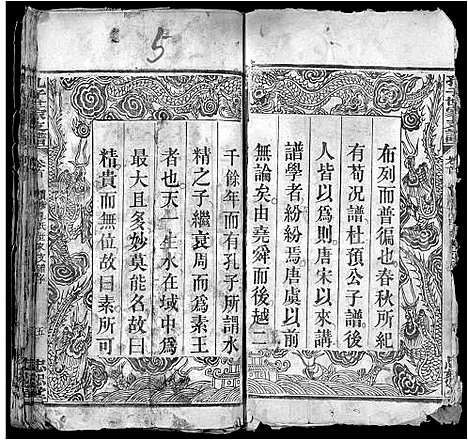 布列而普徧也春秋所紀
有荀况譜杜預公子譜後
人皆以爲則唐宋以來講
譜學者紛紛焉唐虞以前
無論矣由堯舜而後越二
千餘年而有孔子所謂水
精之子繼衰周而爲素王
者也天一生水在域中爲
最大且多妙莫能名故曰
精貴而無位故曰素所可
5
孔子世家支譜
卷首
五